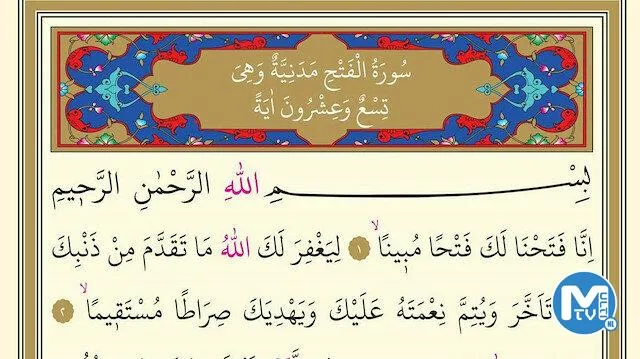 سُورَةُ الْفَتْحِ مَدَنِيَّةٌ وَهِىَ
تِسْعٌ وَعِشْرُونَ اٰيَةً
بِسْمِ اللّٰهِ الرَّحْمٰنِ الرَّح۪يمِ
اِنَّا فَتَحْنَا لَكَ فَتْحًا مُب۪ينًاۙ ﴿١﴾ لِيَغْفِرَ لَكَ اللّٰهُ مَا تَقَدَّمَ مِنْ ذَنْبِكَ
تَاَخَّرَ وَيُتِمَّ نِعْمَتَهُ عَلَيْكَ وَيَهْدِيَكَ صِرَاطًا مُسْتَق۪يمًاۙ ﴿٢﴾
MULTI TV NL